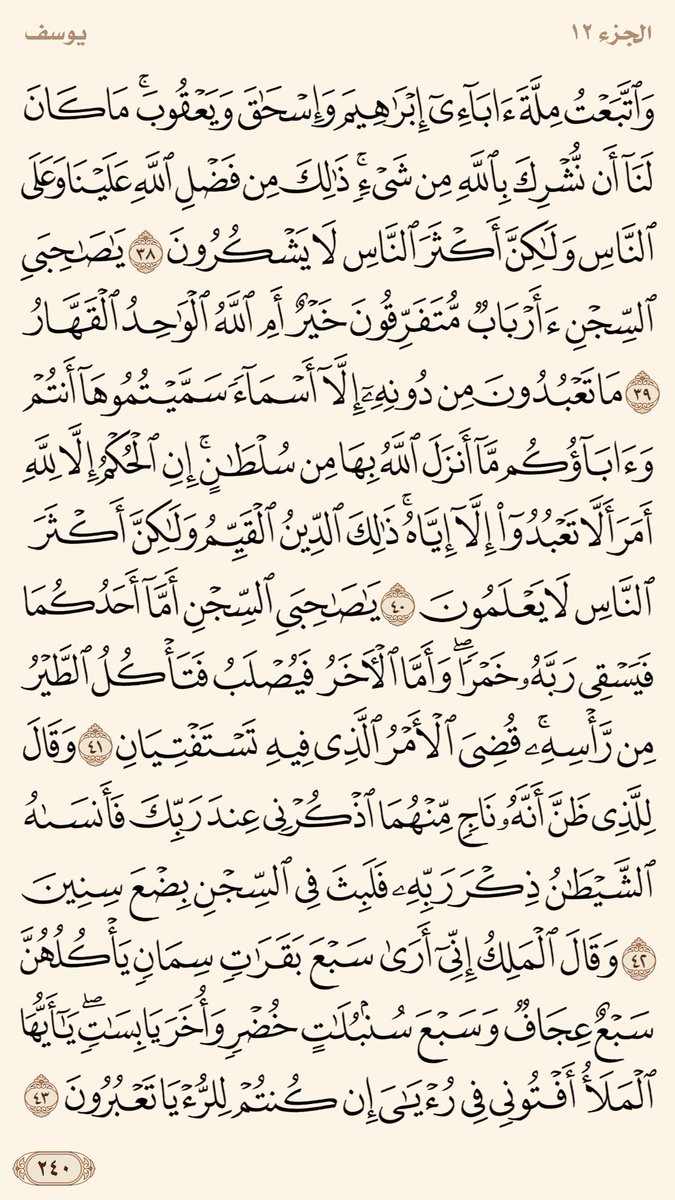 الجزء ١٢
يوسف
وَٱتَّبَعۡتُ مِلَّةَ ءَابَآءِيٓ إِبۡرَٰهِيمَ وَإِسۡحَٰقَ وَيَعۡقُوبَۚ مَا كَانَ
لَنَآ أَن نُّشۡرِكَ بِٱللَّهِ مِن شَيۡءٖۚ ذَٰلِكَ مِن فَضۡلِ ٱللَّهِ عَلَيۡنَا وَعَلَى
ٱلنَّاسِ وَلَٰكِنَّ أَكۡثَرَ ٱلنَّاسِ لَا يَشۡكُرُونَ ٣٨ يَٰصَٰحِبَيِ
ٱلسِّجۡنِ ءَأَرۡبَابٞ مُّتَفَرِّقُونَ خَيۡرٌ أَمِ ٱللَّهُ ٱلۡوَٰحِدُ ٱلۡقَهَّارُ
٣٩ مَا تَعۡبُدُونَ مِن دُونِهِۦٓ إِلَّآ أَسۡمَآءٗ سَمَّيۡتُمُوهَآ أَنتُمۡ
وَءَابَآؤُكُم مَّآ أَنزَلَ ٱللَّهُ بِهَا مِن سُلۡطَٰنٍۚ إِنِ ٱلۡحُكۡمُ إِلَّا لِلَّهِ
أَمَرَ أَلَّا تَعۡبُدُوٓاْ إِلَّآ إِيَّاهُۚ ذَٰلِكَ ٱلدِّينُ ٱلۡقَيِّمُ وَلَٰكِنَّ أَكۡثَرَ
ٱلنَّاسِ لَا يَعۡلَمُونَ ٤٠ يَٰصَٰحِبَيِ ٱلسِّجۡنِ أَمَّآ أَحَدُكُمَا
فَيَسۡقِي رَبَّهُۥ خَمۡرٗاۖ وَأَمَّا ٱلۡأٓخَرُ فَيُصۡلَبُ فَتَأۡكُلُ ٱلطَّيۡرُ
مِن رَّأۡسِهِۦۚ قُضِيَ ٱلۡأَمۡرُ ٱلَّذِي فِيهِ تَسۡتَفۡتِيَانِ ٤١ وَقَالَ
لِلَّذِي ظَنَّ أَنَّهُۥ نَاجٖ مِّنۡهُمَا ٱذۡكُرۡنِي عِندَ رَبِّكَ فَأَنسَىٰهُ
ٱلشَّيۡطَٰنُ ذِكۡرَ رَبِّهِۦ فَلَبِثَ فِي ٱلسِّجۡنِ بِضۡعَ سِنِينَ
٤٢ وَقَالَ ٱلۡمَلِكُ إِنِّيٓ أَرَىٰ سَبۡعَ بَقَرَٰتٖ سِمَانٖ يَأۡكُلُهُنَّ
سَبۡعٌ عِجَافٞ وَسَبۡعَ سُنۢبُلَٰتٍ خُضۡرٖ وَأُخَرَ يَابِسَٰتٖۖ يَٰٓأَيُّهَا
ٱلۡمَلَأُ أَفۡتُونِي فِي رُءۡيَٰيَ إِن كُنتُمۡ لِلرُّءۡيَا تَعۡبُرُونَ ٤٣
٢٤٠